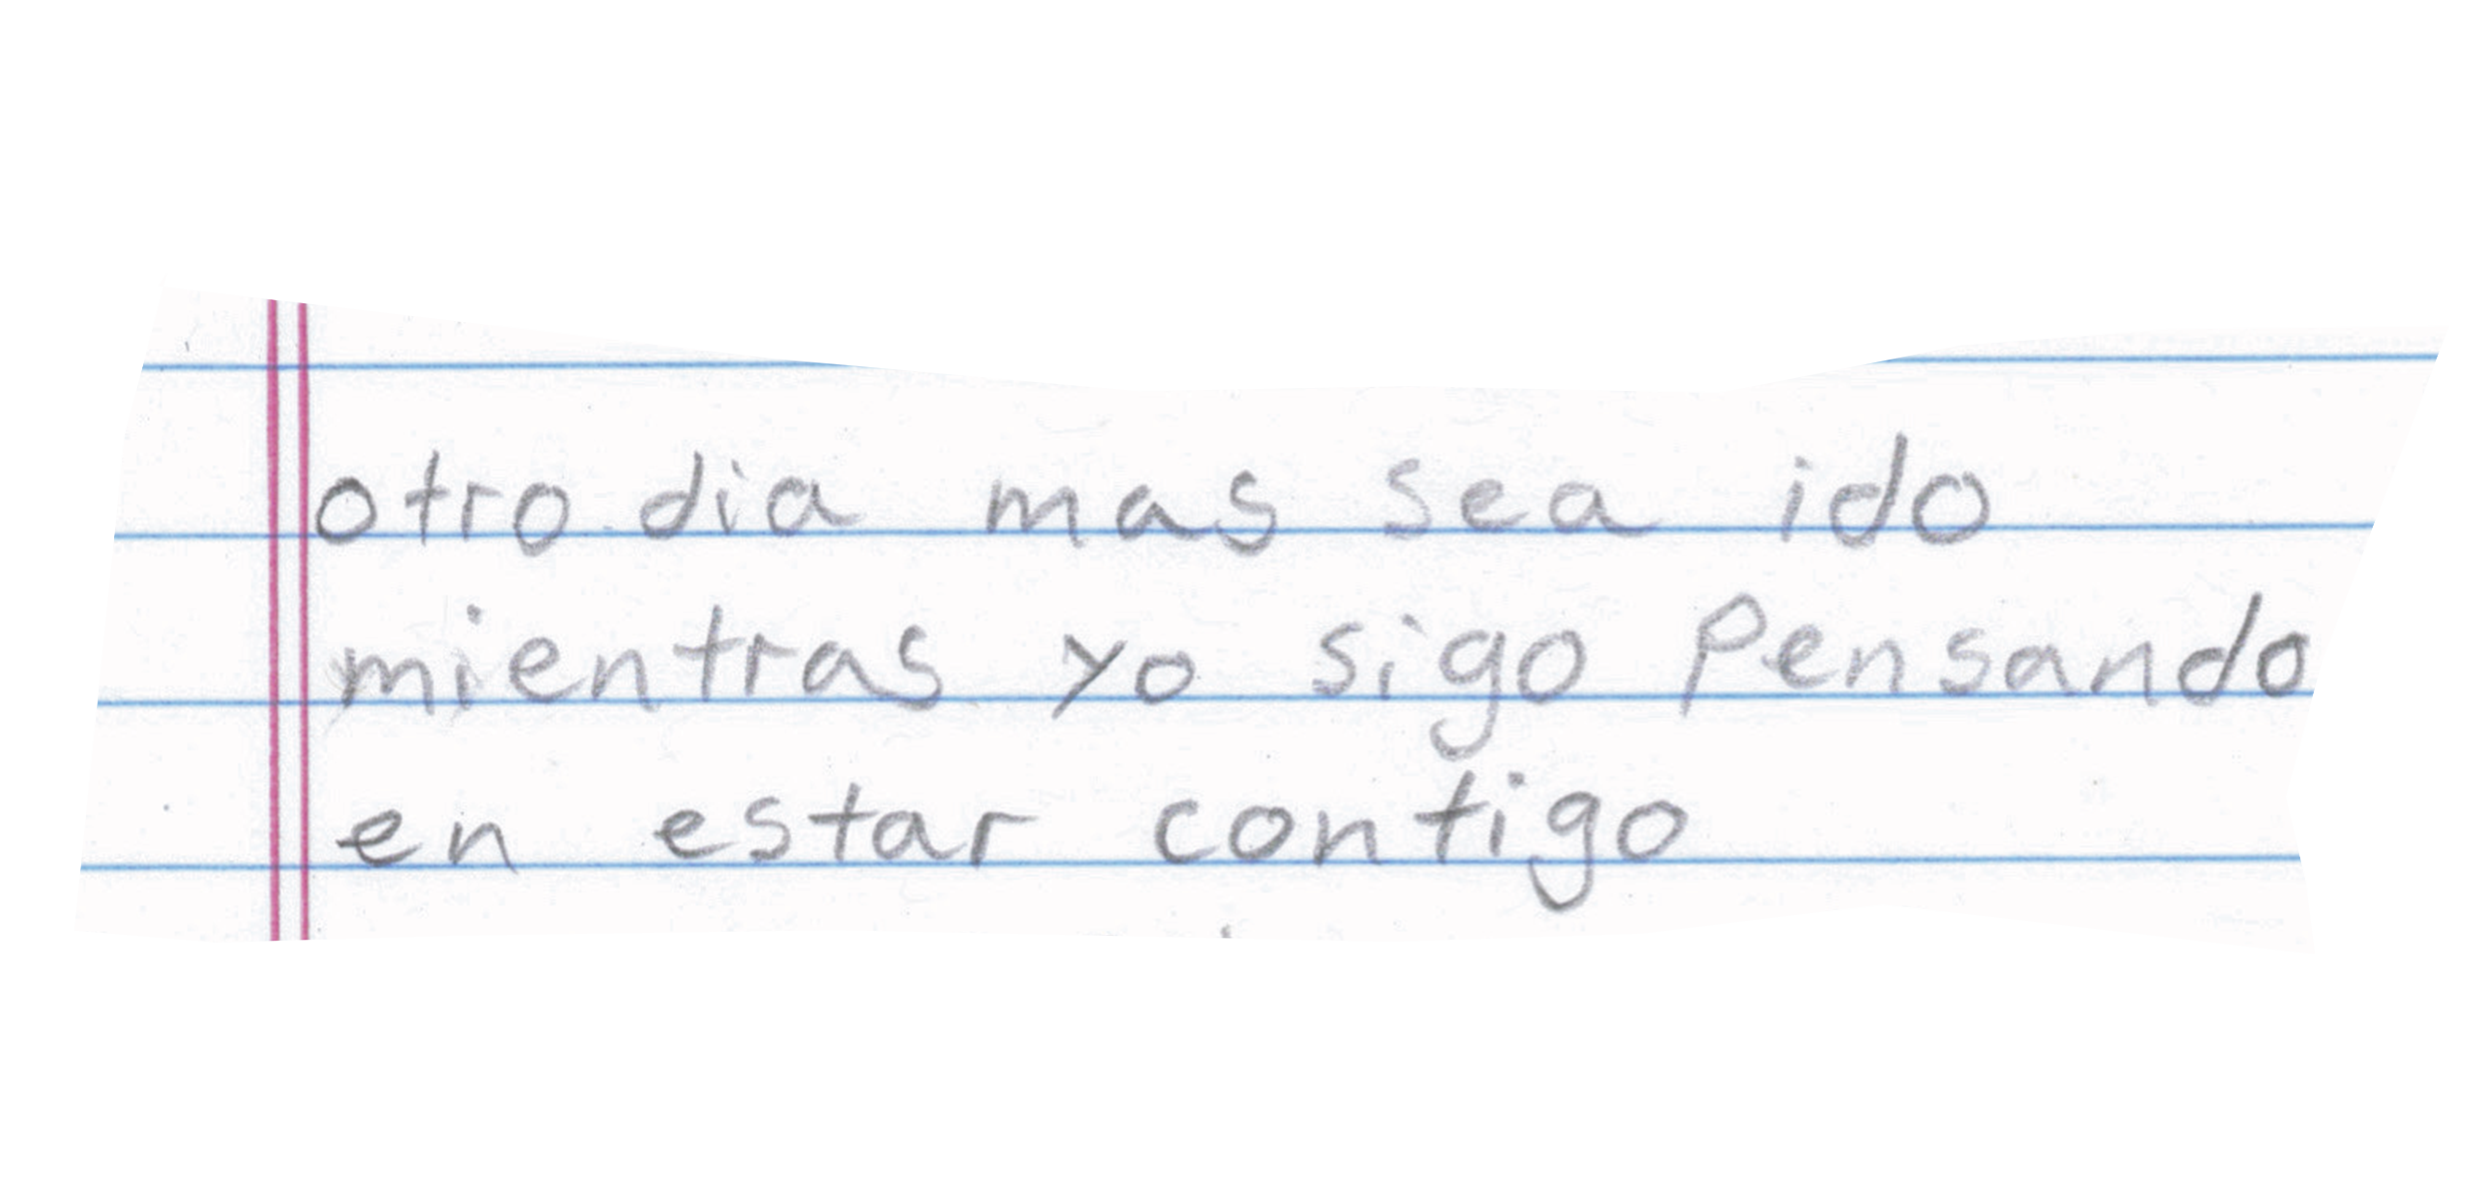 otro dia mas sea ido
mientras yo sigo Pensando
en estar contigo